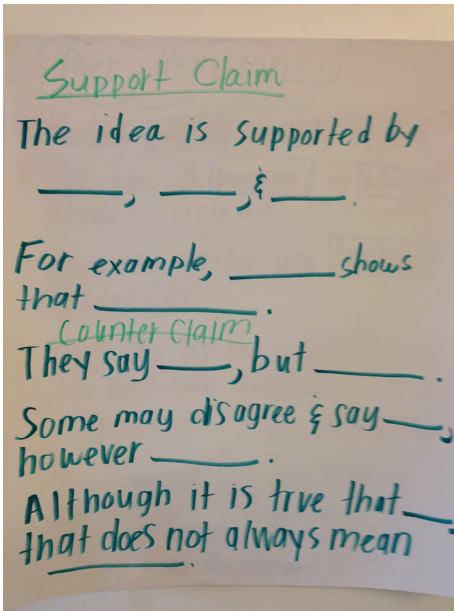 Support Claim
The idea is supported by
____, ____, & ____.
For example, ____ shows
that ____.
Counter Claim
They say ____, but ____.
Some may disagree & say ____,
however ____.
Although it is true that ____,
that does not always mean
____.